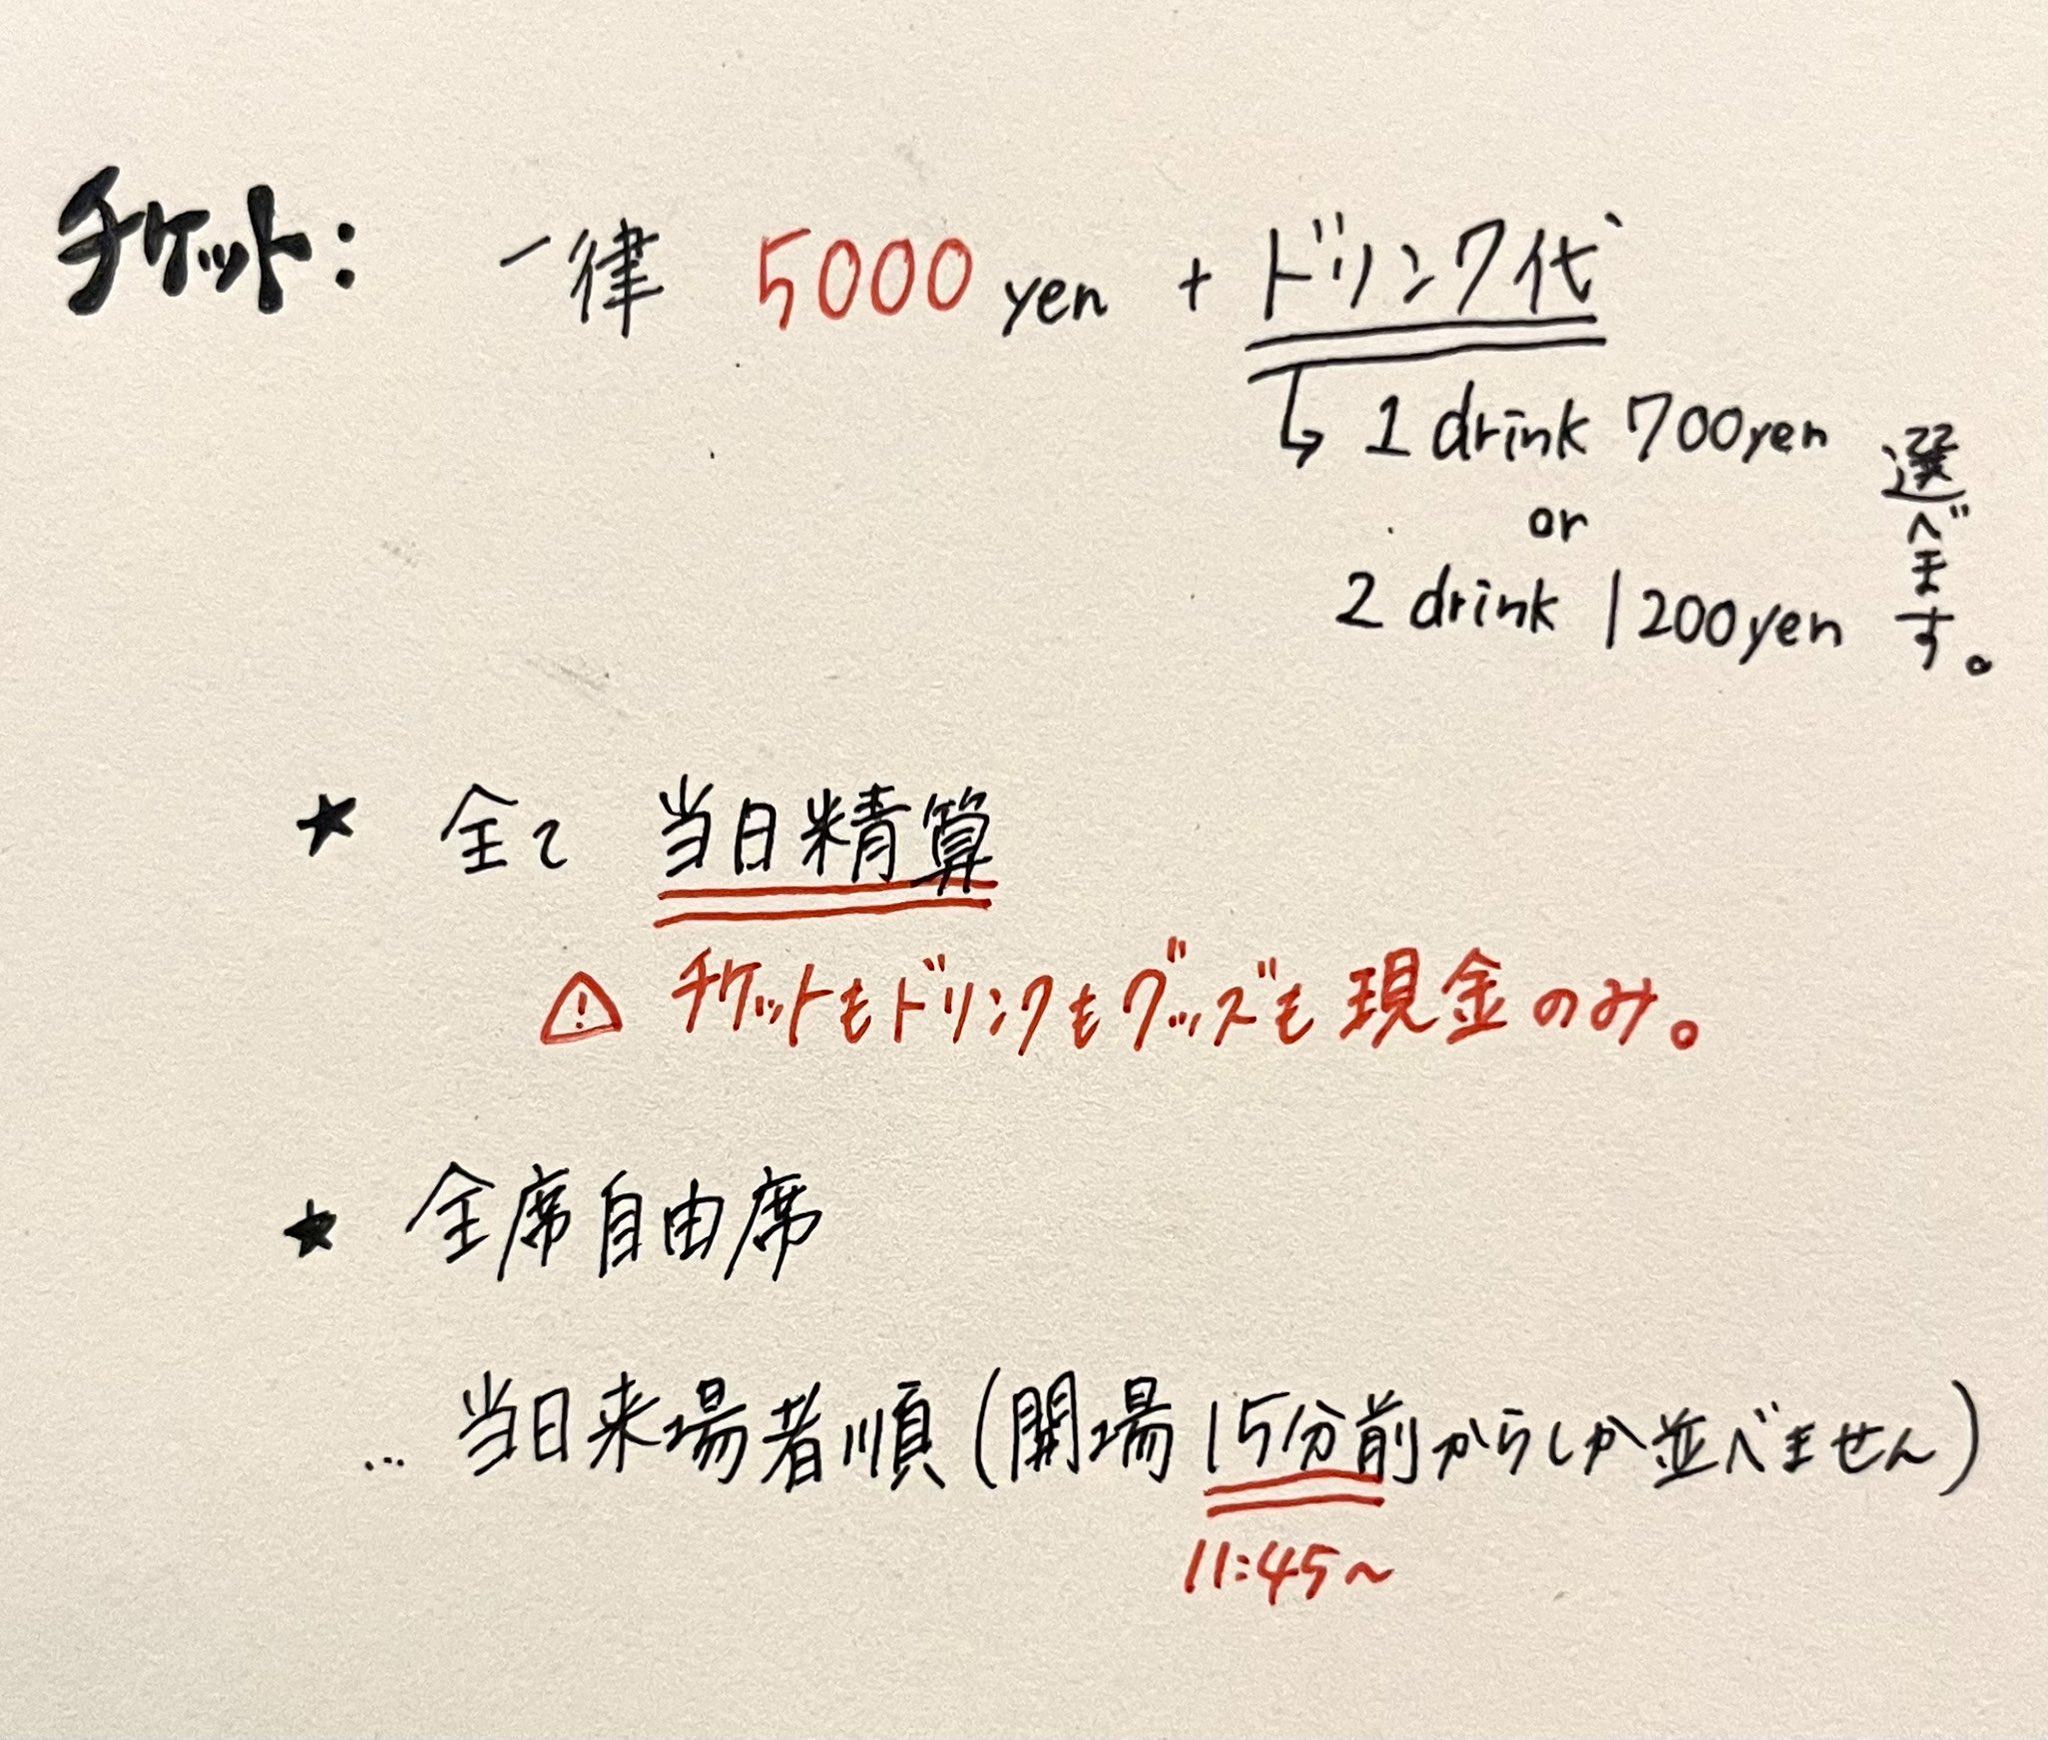 チケット: 一律 5000 yen + ドリンク代
↳ 1 drink 700yen
or
2 drink 1200yen
選べます。
★ 全て 当日精算
⚠ チケットもドリンクもグッズも現金のみ。
★ 全席自由席
… 当日来場者順 (開場 15分前からしか並べません)
11:45~